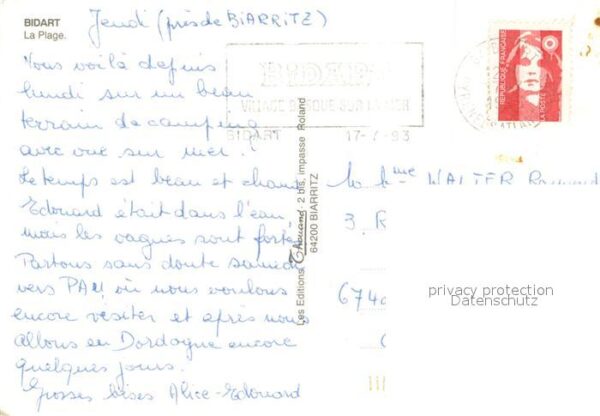 BIDART
La Plage.
Jeudi (près de BIARRITZ)
Vous voilà depuis
lundi sur un beau
terrain de camping
avec vue sur mer.
Le temps est beau et chaud
Edouard était dans l'eau,
mais les vagues sont fortes
Partons sans doute samedi
vers PAU où nous voulons
encore visiter et après nous
allons en Dordogne encore
quelques jours.
Grosses bises Alice-Edouard
BIDART
VILLAGE BASQUE SUR LA MER
BIDART 17-7-93
REPUBLIQUE FRANÇAISE
LA POSTE
Les Editions Thouand - 2 bis, impasse Roland
64200 BIARRITZ
Mme WALTER
3. R
674
privacy protection
Datenschutz